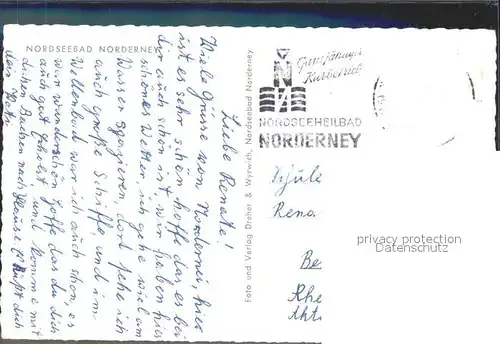 NORDSEEBAD NORDERNEY
Liebe Renate!
Viele Grüße von Norderney, hier
ist es sehr schön hoffe das es bei
dir auch schön ist wir haben hier
schönes Wetter, ich gehe viel am
Wasser spazieren, dort sehe ich
auch große Schiffe, und im
Wellenbad war ich auch schon, es
war wunderschön hoffe das du dich
auch gut erholst, und komme mit
dicken Backen nach Hause es grüßt dich
dein
Foto und Verlag Dreher & Wyrwich, Nordseebad Norderney
Ganzjähriger
Kurbetrieb
NORDSEEHEILBAD
NORDERNEY
Schüle
Rena
Be
Rhe
privacy protection
Datenschutz